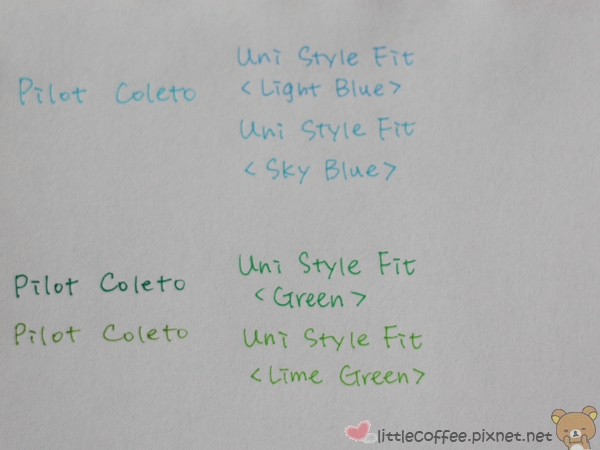 Pilot Coleto
Uni Style Fit
<Light Blue>
Uni Style Fit
<Sky Blue>
Pilot Coleto
Uni Style Fit
<Green>
Pilot Coleto
Uni Style Fit
<Lime Green>
littlecoffee.pixnet.net